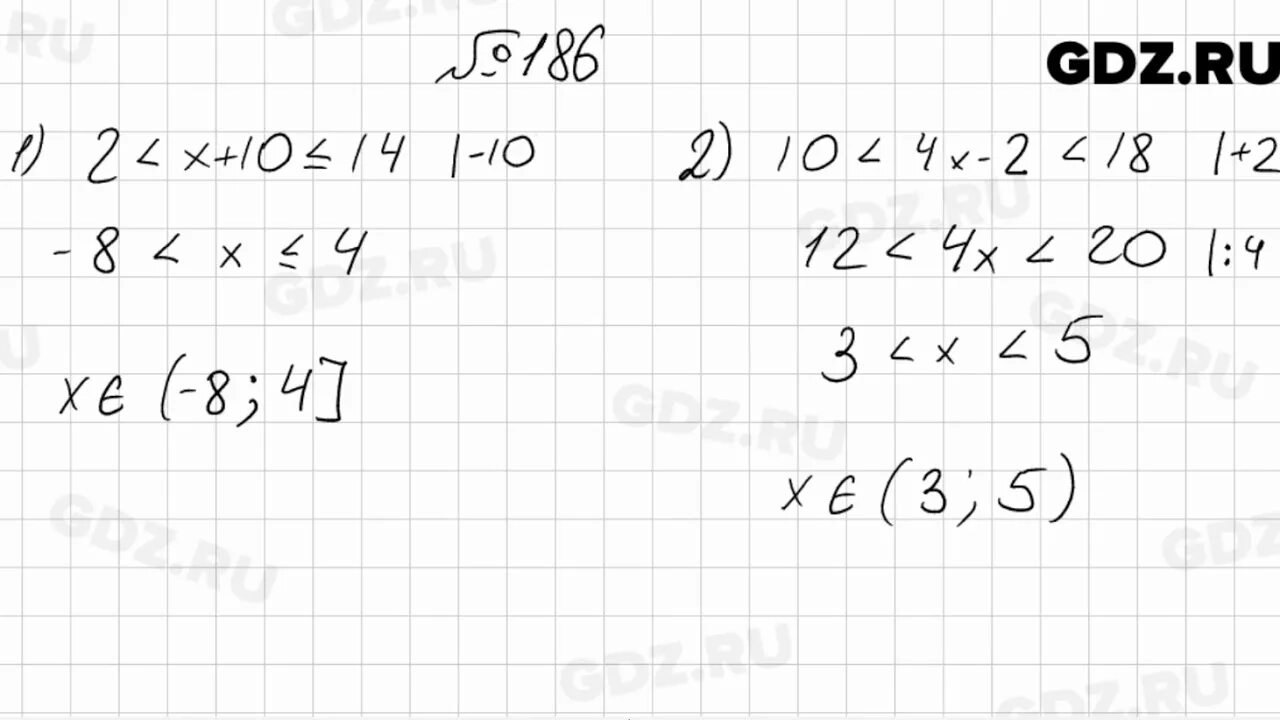 №186
GDZ.RU
1) 2 < x+10 ≤ 14 |-10
-8 < x ≤ 4
x ∈ (-8; 4]
2) 10 < 4x-2 < 18 |+2
12 < 4x < 20 |:4
3 < x < 5
x ∈ (3; 5)